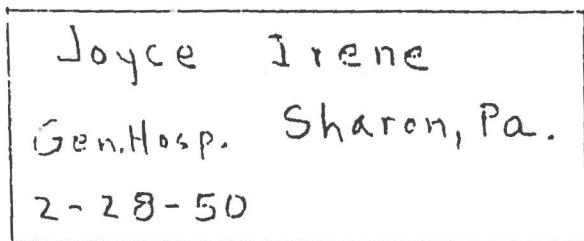 Joyce Irene
Gen. Hosp. Sharon, Pa.
2-28-50